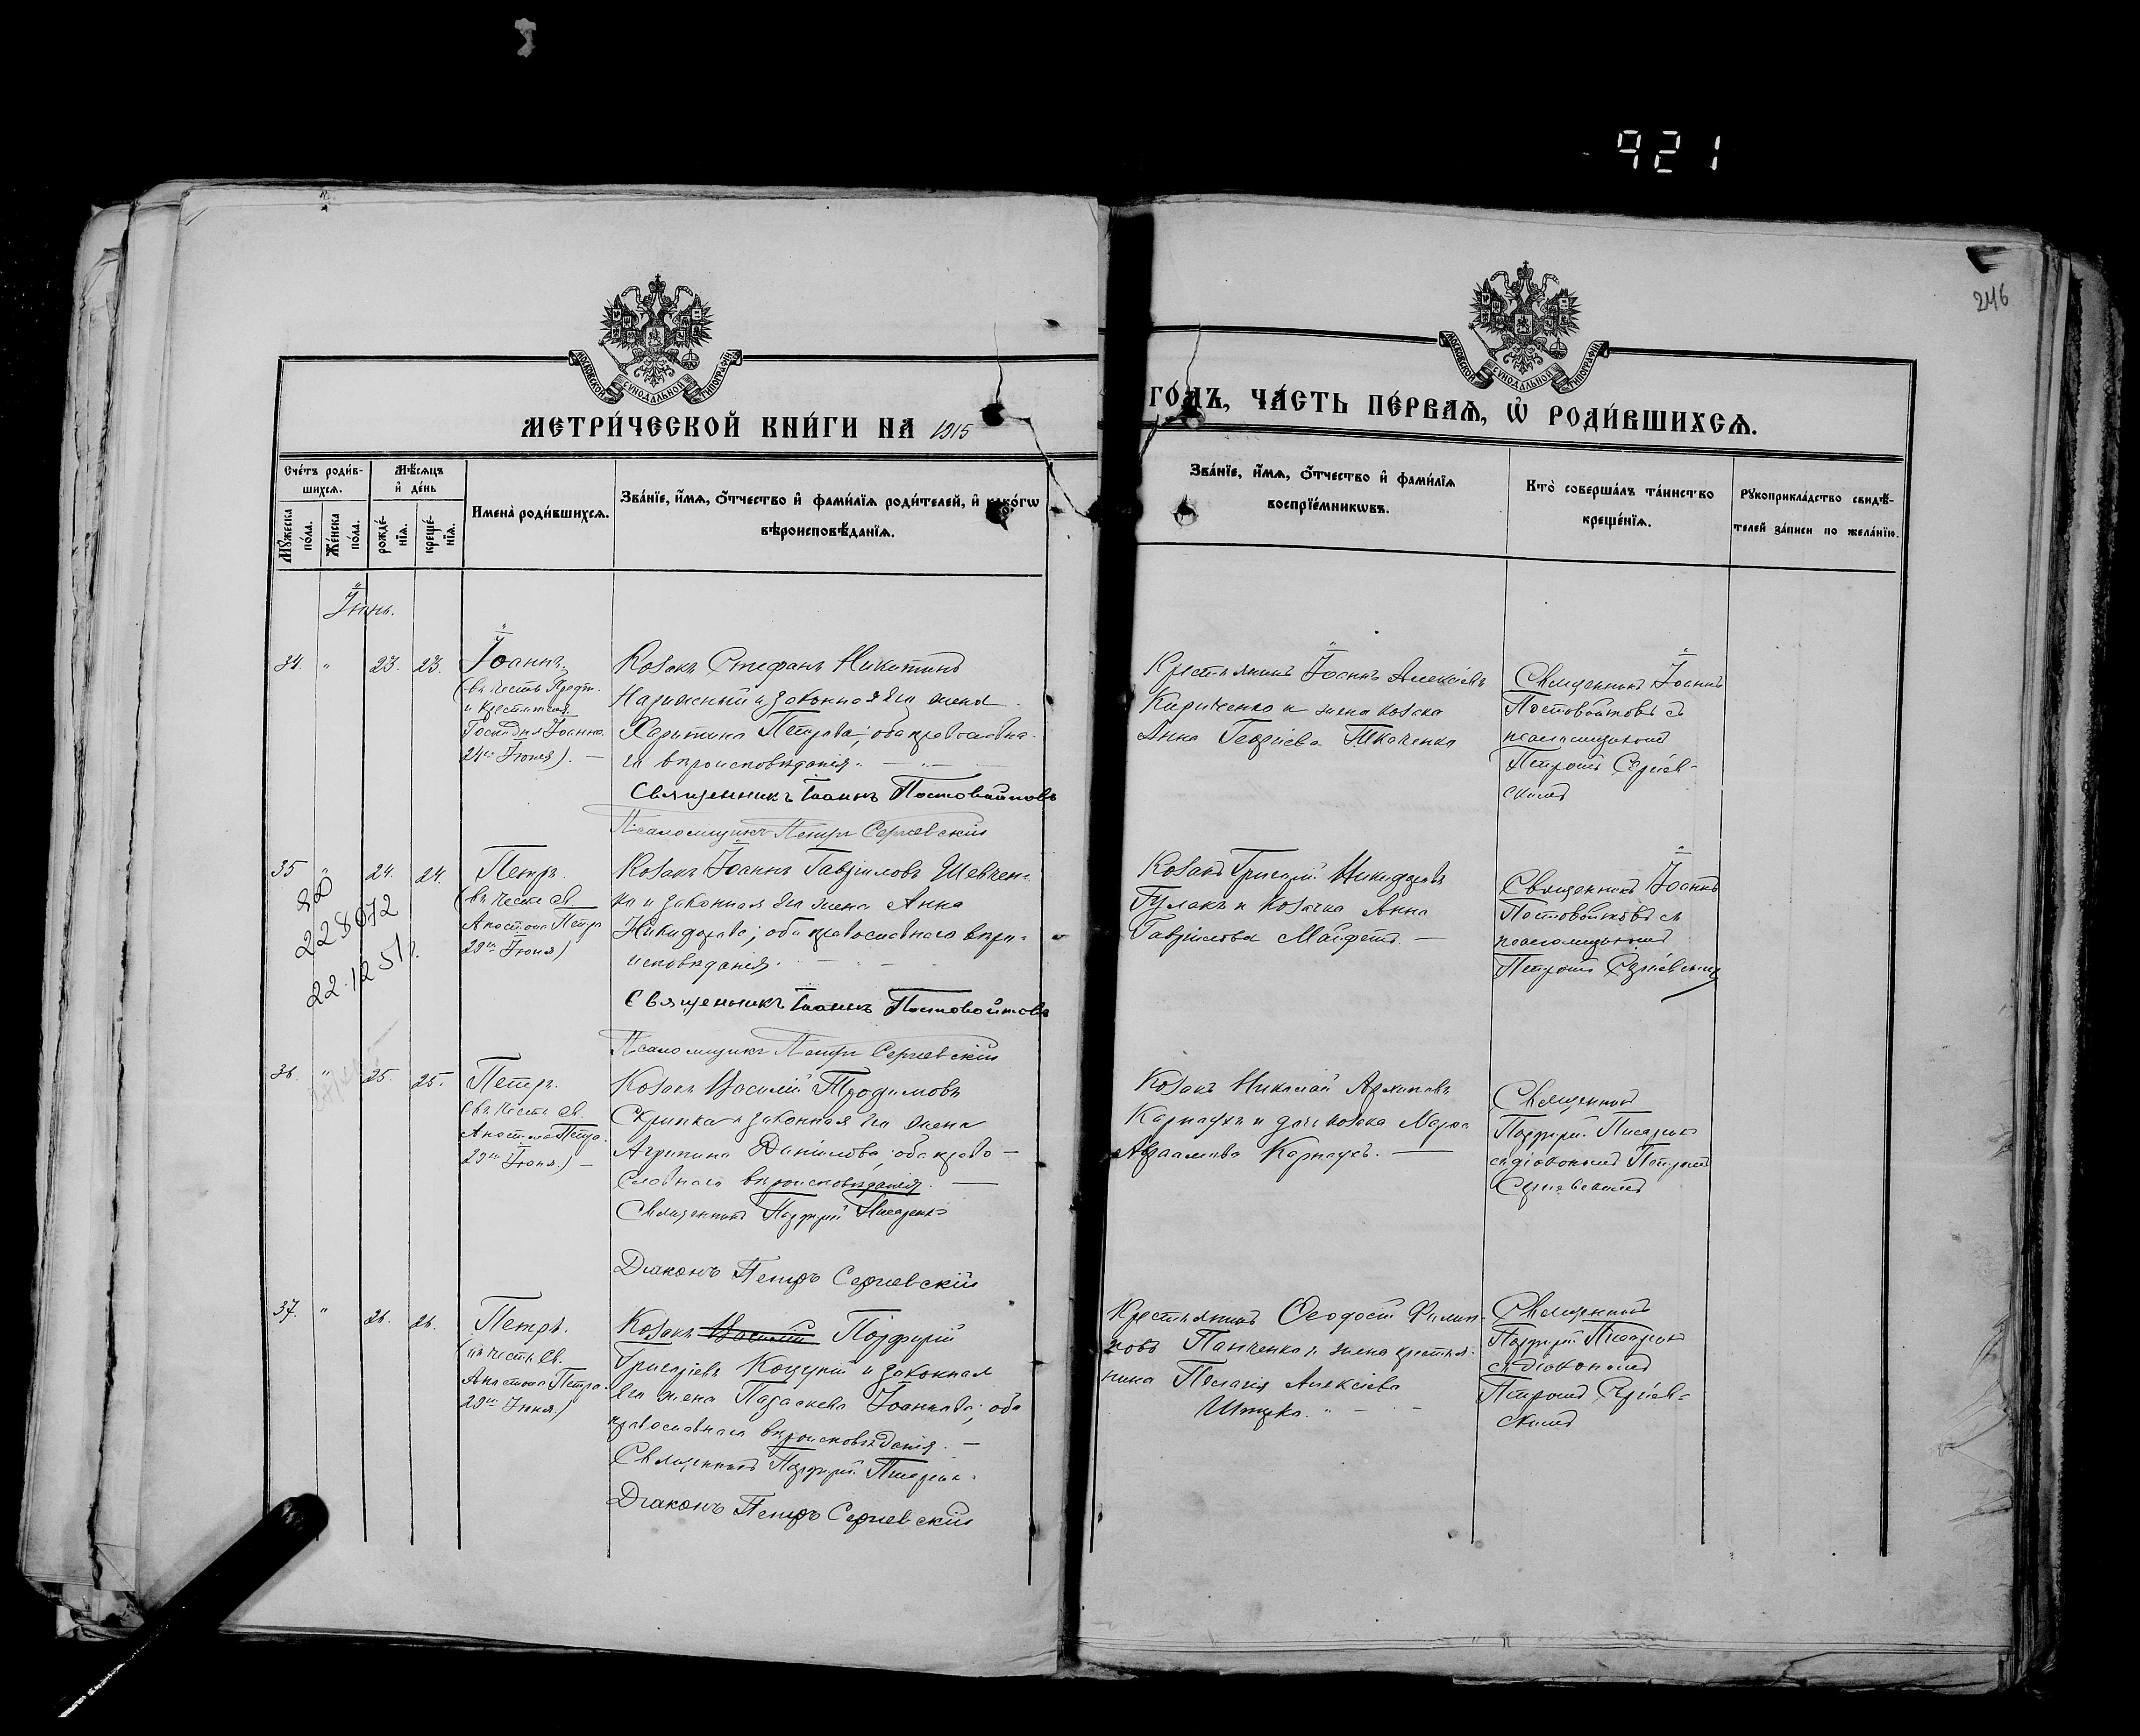 921
246
МОСКОВСКОЙ СУНОДАЛЬНОЙ ТИПОГРАФІИ
МОСКОВСКОЙ СУНОДАЛЬНОЙ ТИПОГРАФІИ
МЕТРИ́ЧЕСКОЙ КНИ́ГИ НА 1915
ГО́ДЪ, ЧА́СТЬ ПЕ́РВАѦ, Ѡ҆ РОДИ́ВШИХСѦ.
Сче́тъ роди́в-
шихсѧ.
Мꙋ́жеска по́ла.
Же́нска по́ла.
Мѣ́сѧцъ
и҆ де́нь
рожде́-
нїѧ.
креще́-
нїѧ.
Имена̀ роди́вшихсѧ.
Зва́нїе, и҆́мѧ, ѻ҆́тчество и҆ фами́лїѧ роди́телей, и҆ како́гѡ
вѣроисповѣ́данїѧ.
Зва́нїе, и҆́мѧ, ѻ҆́тчество и҆ фами́лїѧ
воспрїе́мникѡвъ.
Кто̀ соверша́лъ та́инство
креще́нїѧ.
Рꙋкоприкла́дство свидѣ́-
телей за́писи по жела́нїю.
Іюнь.
34 " 23. 23.
Іоаннъ.
(въ честь Предт.
и Крестителя
Господня Іоанна
24го Іюня). —
Козакъ Стефанъ Никитинъ
и законная его жена
Харитина Петрова; оба православна-
го вѣроисповѣданія. —
Священникъ Іоаннъ Постовойтовъ
Псаломщикъ Петръ Сергіевскій
Крестьянинъ Іоаннъ Алексіевъ
Кириченко и жена козака
Анна Георгіева Ткаченко
Священникъ Іоаннъ
Постовойтовъ съ
псаломщикомъ
Петромъ Сергіев-
скимъ
35 " 24. 24.
228072
22.12.51г.
Петръ.
(въ честь св.
Апостола Петра
29го Іюня)
Козакъ Іоаннъ Гавріиловъ Шевчен-
ко и законная его жена Анна
Никифорова; оба православнаго вѣро-
исповѣданія. —
Священникъ Іоаннъ Постовойтовъ
Псаломщикъ Петръ Сергіевскій
Козакъ Григорій Никифоровъ
Гулакъ и козачка Анна
Гавріилова Майфетъ. —
Священникъ Іоаннъ
Постовойтовъ съ
псаломщикомъ
Петромъ Сергіевскимъ
36. " 25. 25.
Петръ.
(въ честь св.
Апостола Петра.
29го Іюня.) —
Козакъ Василій Трофимовъ
Скрипка и законная его жена
Агрипина Даніилова; оба право-
славнаго вѣроисповѣданія. —
Священникъ Порфирій Писаренко
Діаконъ Петръ Сергіевскій
Козакъ Николай Архиповъ
Карнаухъ и дочь козака Марія
Авраамова Карнаухъ. —
Священникъ
Порфирій Писаренко
съ діакономъ Петромъ
Сергіевскимъ
37. " 26. 26.
Петръ.
(въ честь св.
Апостола Петра
29го Іюня.)
Козакъ Василій Порфирій
Григоріевъ Коцупій и законная
его жена Параскева Іоаннова; оба
православнаго вѣроисповѣданія. —
Священникъ Порфирій Писаренко
Діаконъ Петръ Сергіевскій
Крестьянинъ Феодосій Филип-
повъ Панченко и жена крестья-
нина Пелагія Алексіева
Священникъ
Порфирій Писаренко
съ діакономъ
Петромъ Сергіев-
скимъ